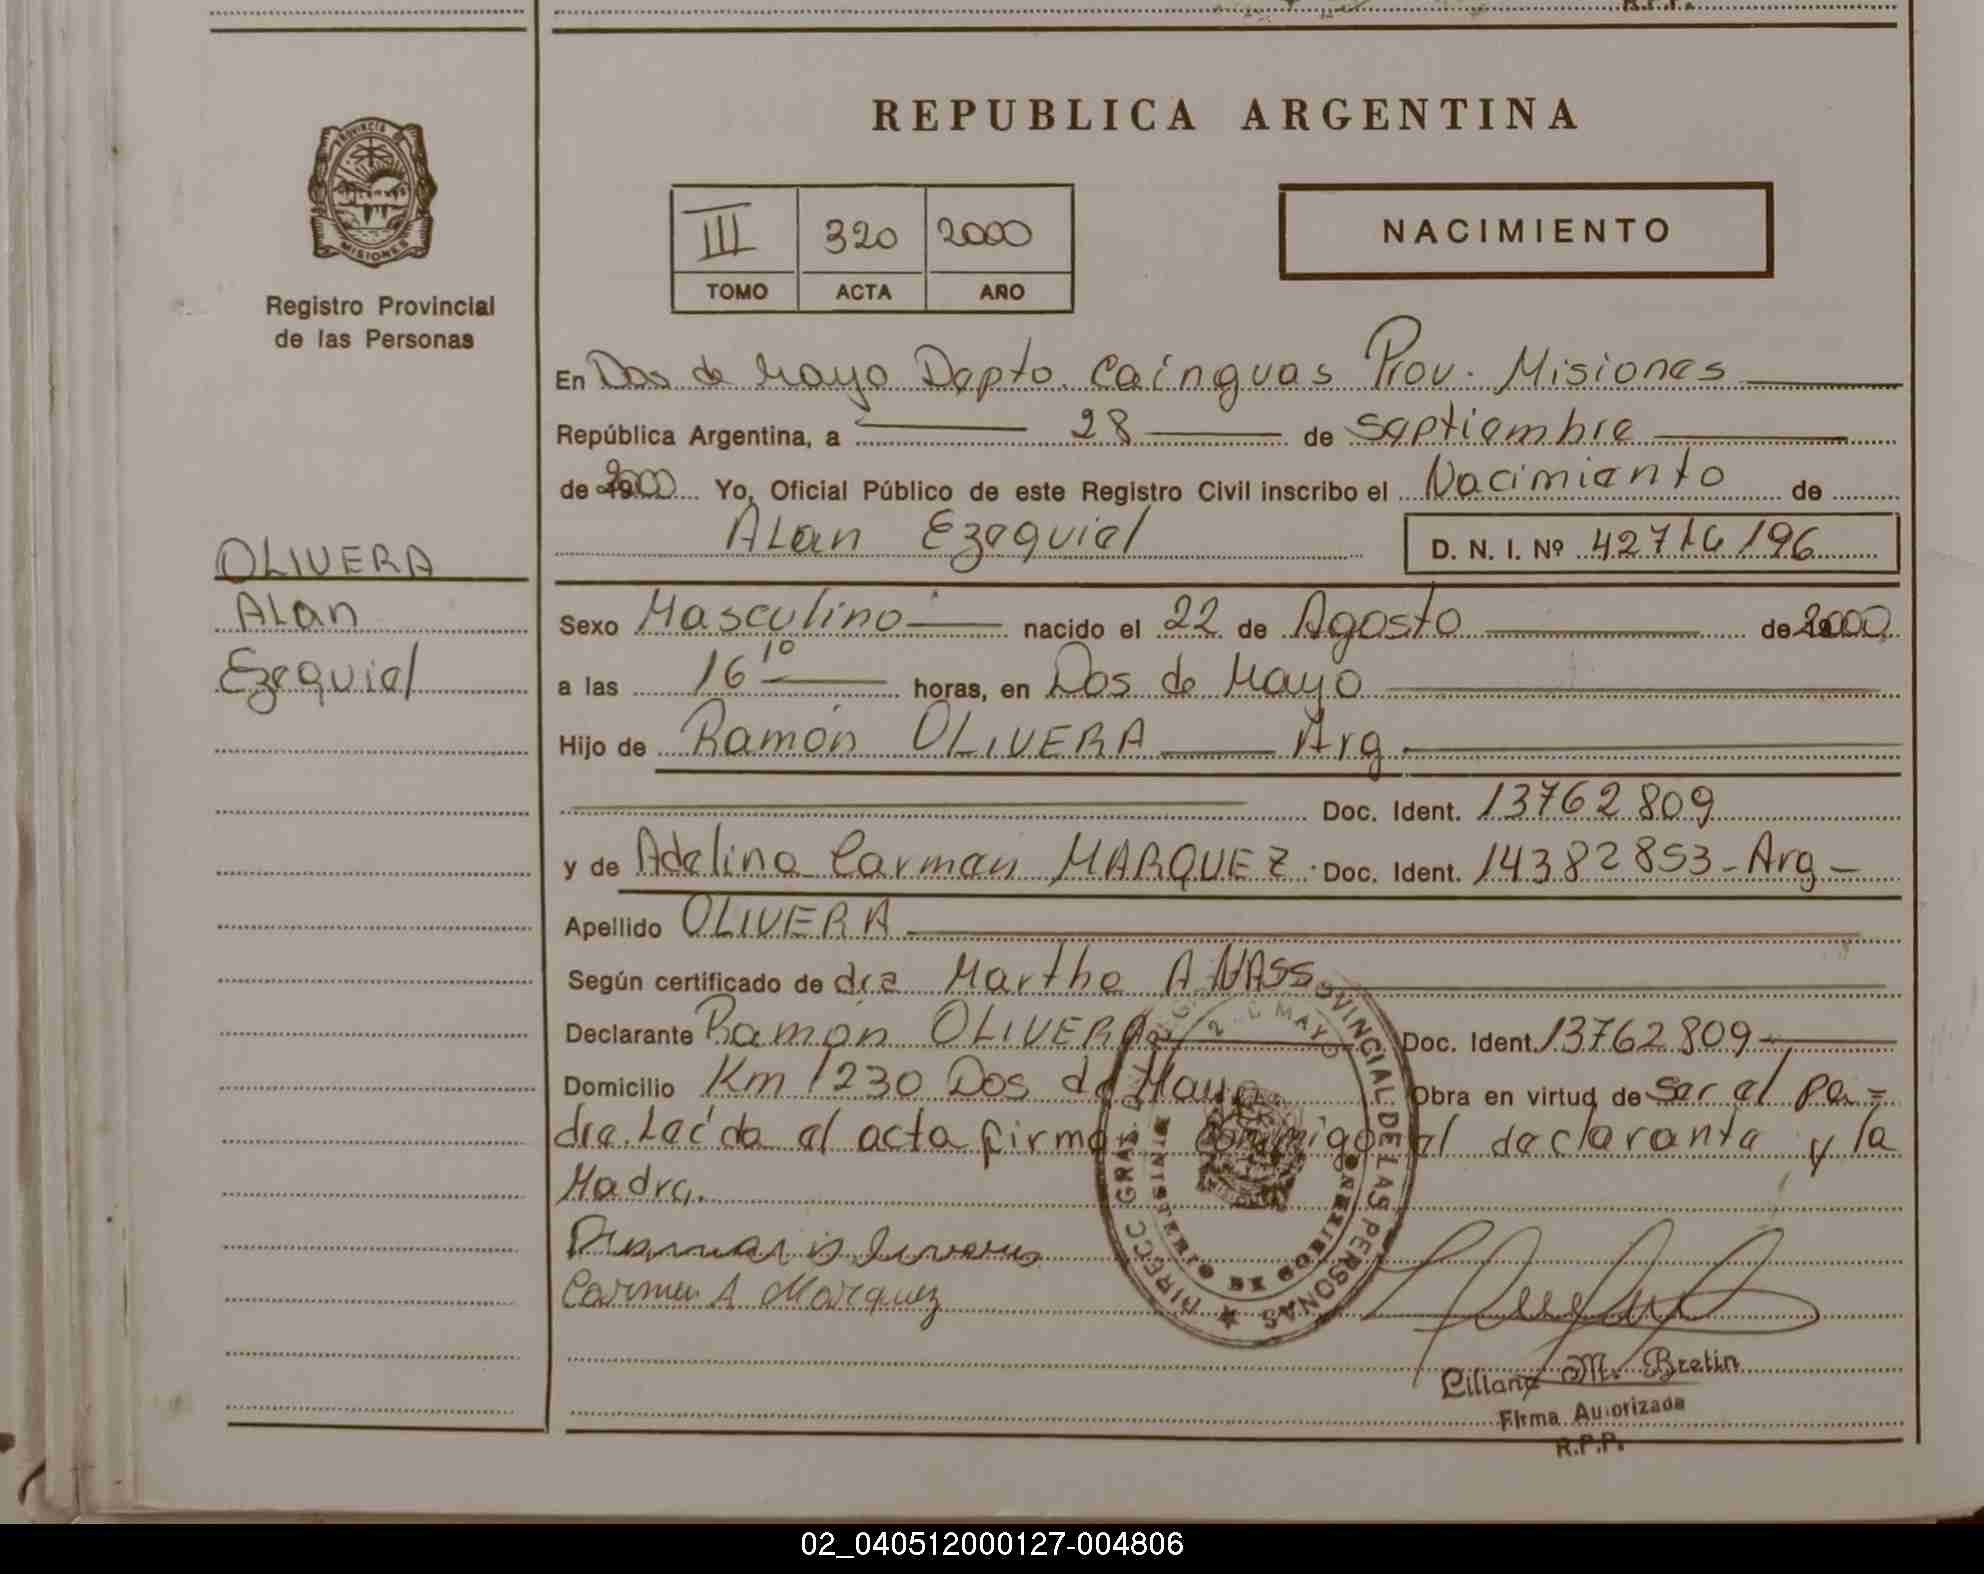 R.P.P.
PROVINCIA DE
MISIONES
Registro Provincial
de las Personas
OLIVERA
ALan
Ezequiel
REPUBLICA ARGENTINA
III 320 2000
TOMO ACTA AÑO
NACIMIENTO
En Dos de Mayo Depto. Cainguas Prov. Misiones
República Argentina, a 28 de septiembre
de 2000 Yo, Oficial Público de este Registro Civil inscribo el Nacimiento de
ALan Ezequiel D. N. I. Nº 42716196
Sexo Masculino nacido el 22 de Agosto de 2000
a las 16 10 horas, en Dos de Mayo
Hijo de Ramón OLIVERA Arg
Doc. Ident. 13762809
y de Adelina Carmen MARQUEZ Doc. Ident. 14382853 - Arg -
Apellido OLIVERA
Según certificado de dra Martha A NASS
Declarante Ramón OLIVERA Doc. Ident. 13762809
Domicilio Km 1230 Dos de Mayo Obra en virtud de ser el pa=
dre. Leída el acta firma conmigo el declarante y la
Madre.
Carmen A Marquez
DIRECC GRAL. PROVINCIAL DE LAS PERSONAS
2 DE MAYO
MINISTERIO DE GOBIERNO
Liliana M. Bretin
Firma Autorizada
R.P.P.
02_040512000127-004806